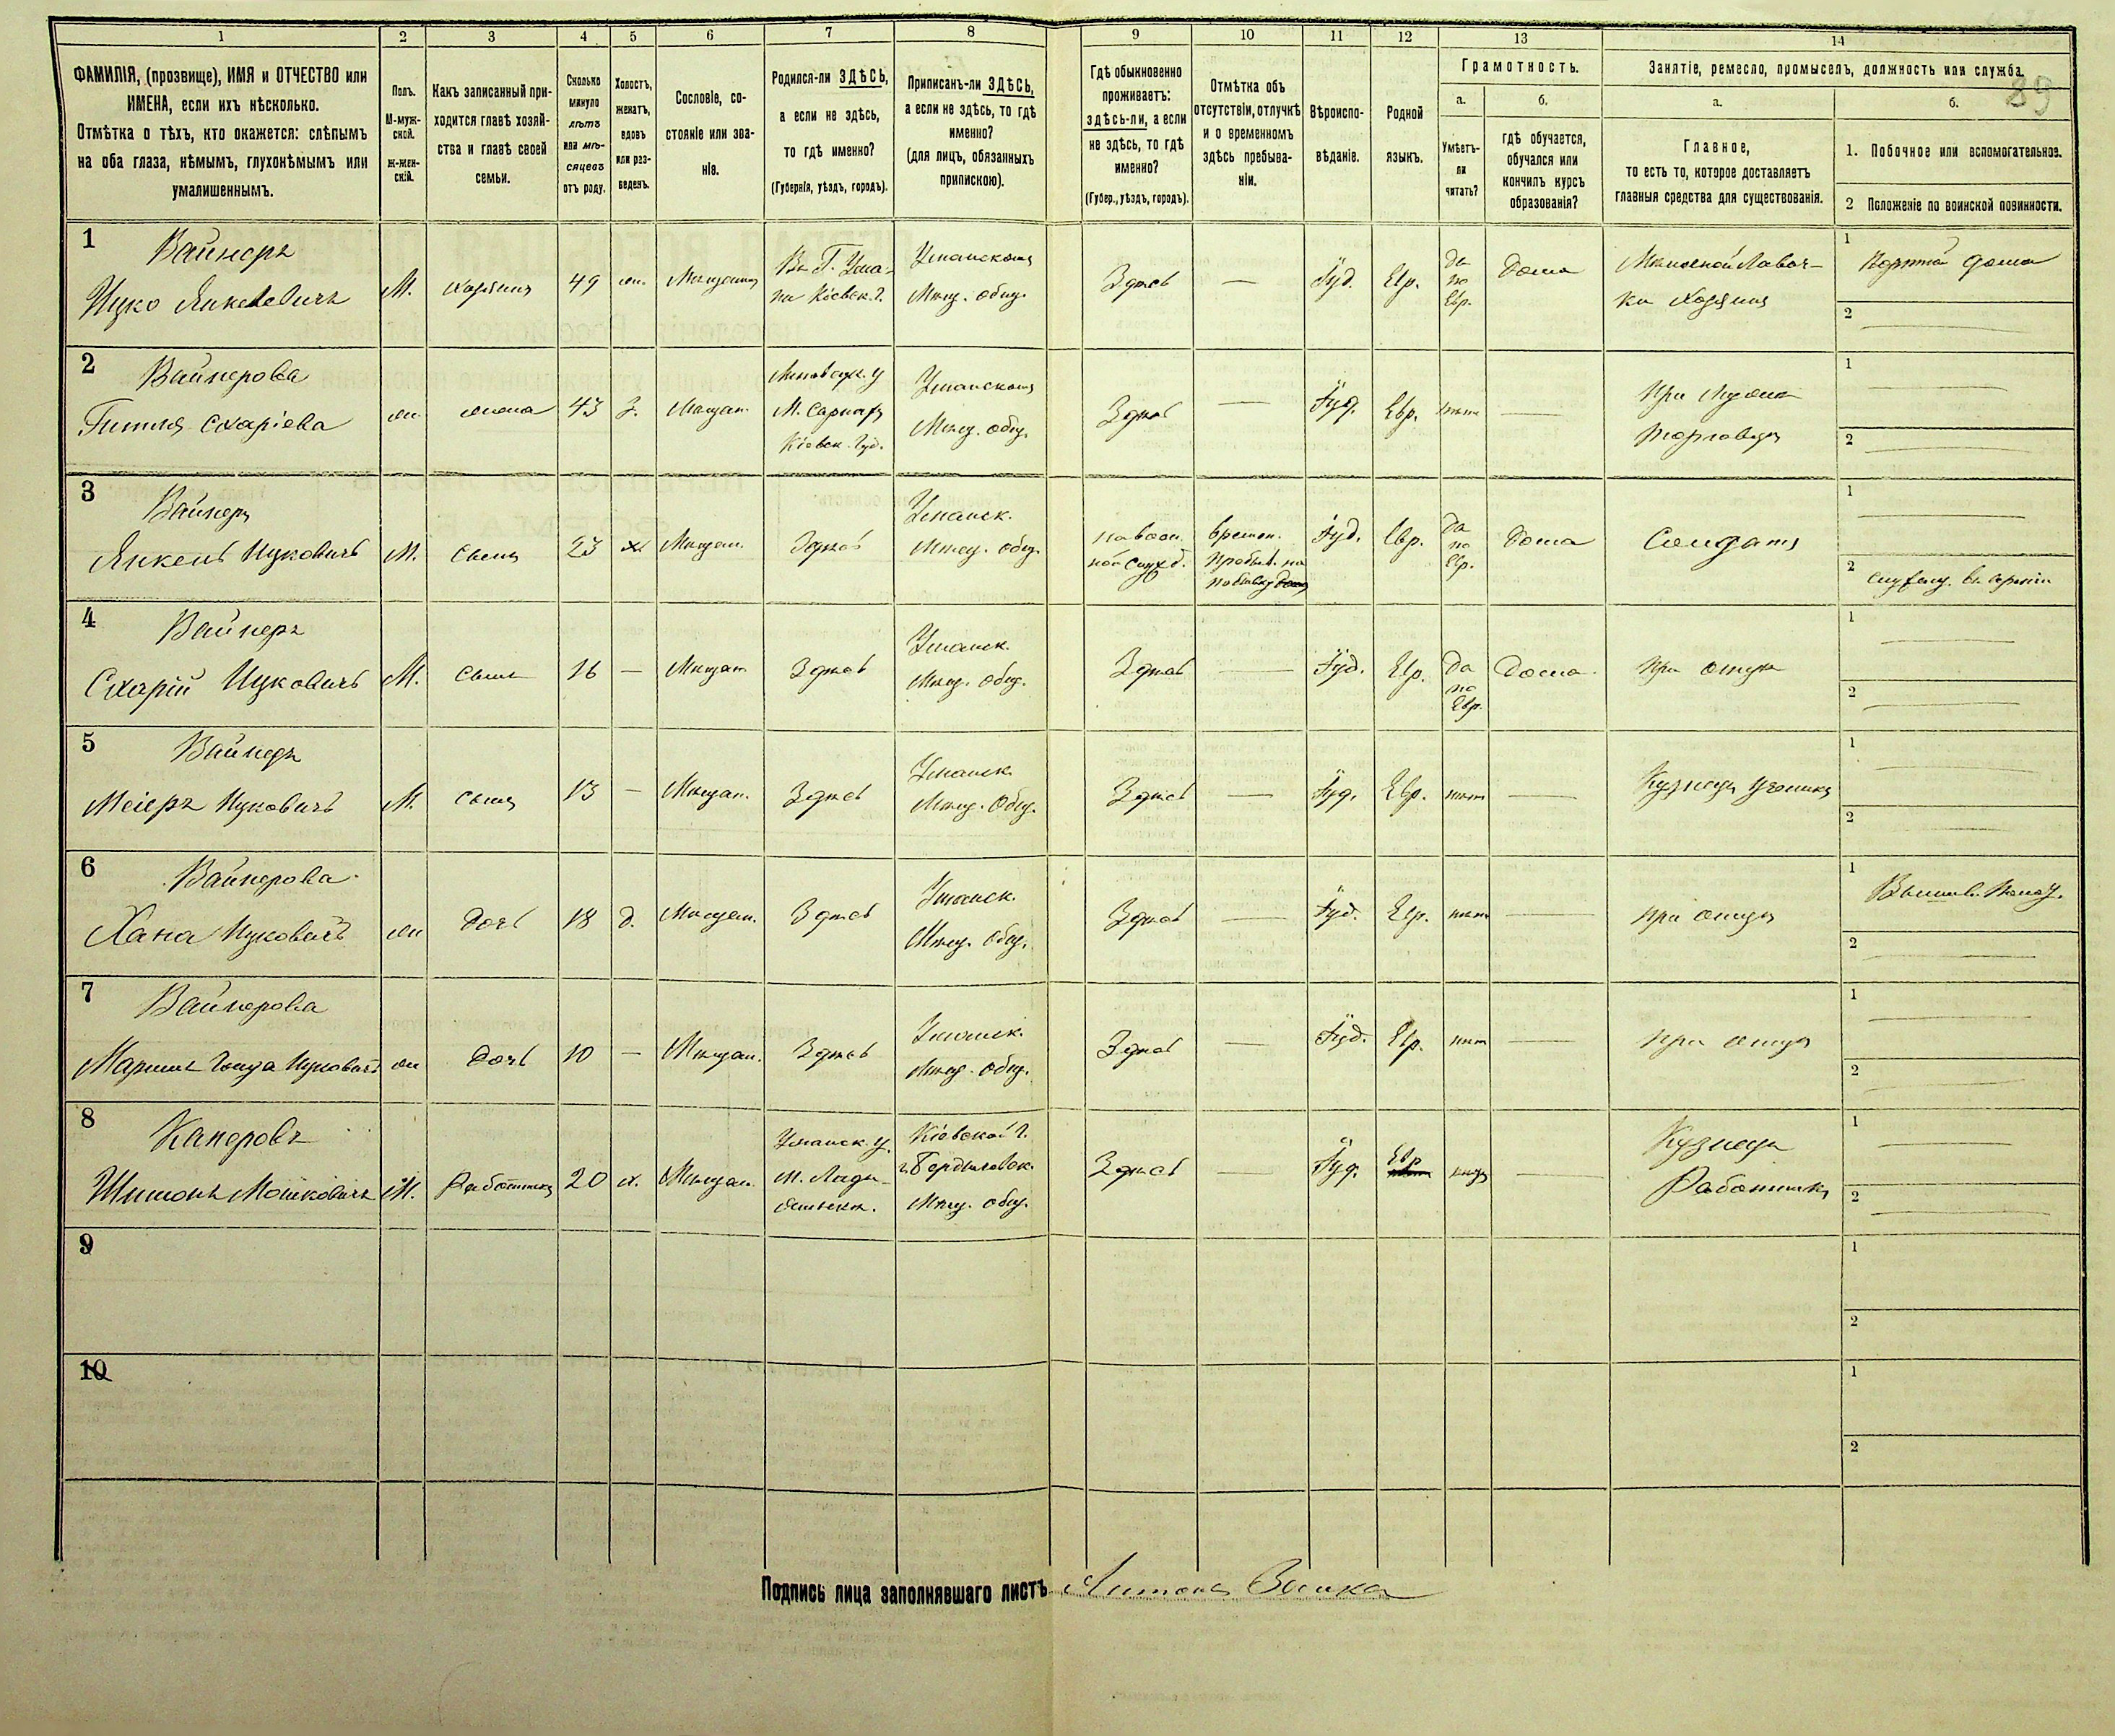 1 2 3 4 5 6 7 8 9 10 11 12 13 14
89
ФАМИЛІЯ, (прозвище), ИМЯ и ОТЧЕСТВО или
ИМЕНА, если ихъ нѣсколько.
Отмѣтка о тѣхъ, кто окажется: слѣпымъ
на оба глаза, нѣмымъ, глухонѣмымъ или
умалишеннымъ.
Полъ.
М-муж-
ской.
Ж-жен-
скій.
Какъ записанный при-
ходится главѣ хозяй-
ства и главѣ своей
семьи.
Сколько
минуло
лѣтъ
или мѣ-
сяцевъ
отъ роду.
Холостъ,
женатъ,
вдовъ
или раз-
веденъ.
Сословіе, со-
стояніе или зва-
ніе.
Родился-ли ЗДѢСЬ,
а если не здѣсь,
то гдѣ именно?
(Губернія, уѣздъ, городъ).
Приписанъ-ли ЗДѢСЬ,
а если не здѣсь, то гдѣ
именно?
(для лицъ, обязанныхъ
припискою).
Гдѣ обыкновенно
проживаетъ:
здѣсь-ли, а если
не здѣсь, то гдѣ
именно?
(Губер., уѣздъ, городъ).
Отмѣтка объ
отсутствіи, отлучкѣ
и о временномъ
здѣсь пребыва-
ніи.
Вѣроиспо-
вѣданіе.
Родной
языкъ.
Грамотность.
а.
Умѣетъ-
ли
читать?
б.
гдѣ обучается,
обучался или
кончилъ курсъ
образованія?
Занятіе, ремесло, промыселъ, должность или служба.
а.
Главное,
то есть то, которое доставляетъ
главныя средства для существованія.
б.
1. Побочное или вспомогательное.
2 Положеніе по воинской повинности.
1
Вайнеръ
Ицко Янкелевичъ
М.
хозяинъ
49
жен.
Мѣщанинъ
Въ Г. Ума-
ни Кіевск. г.
Уманскомъ
Мѣщ. общ.
Здѣсь
—
Іуд.
Евр.
Да
по
Евр.
Дома
Мѣлочной Лавоч-
ки Хозяинъ
1
дома
2
2
Вайнерова
Гитля Схаріева
ж
жена
43
З.
Мѣщан.
Липовецк. у
М.
Кіевск. Губ.
Уманскомъ
Мѣщ. общ.
Здѣсь
—
Іуд.
Евр.
нѣтъ
—
При мужѣ
торговля
1
2
3
Вайнеръ
Янкель Ицковичъ
М.
Сынъ
23
х.
Мѣщан.
Здѣсь
Уманск.
Мѣщ. общ.
на воен.
ной служб.
времен.
пребыв. на
побывку
Іуд.
Евр.
Да
по
Евр.
Дома
Солдатъ
1
2
въ арміи
4
Вайнеръ
Схарій Ицковичъ
М.
Сынъ
16
—
Мѣщан
Здѣсь
Уманск.
Мѣщ. общ.
Здѣсь
—
Іуд.
Евр.
Да
по
Евр.
Дома
При отцѣ
1
2
5
Вайнеръ
Меіеръ Ицковичъ
М.
Сынъ
13
—
Мѣщан.
Здѣсь
Уманск.
Мѣщ. общ.
Здѣсь
—
Іуд.
Евр.
нѣтъ
—
Кузнецъ ученикъ
1
2
6
Вайнерова
Хана Ицковичъ
ж
Дочь
18
д.
Мѣщан.
Здѣсь
Уманск.
Мѣщ. общ.
Здѣсь
—
Іуд.
Евр.
нѣтъ
—
При отцѣ
1
2
7
Вайнерова
Ицковичъ
ж
Дочь
10
—
Мѣщан.
Здѣсь
Уманск.
Мѣщ. общ.
Здѣсь
—
Іуд.
Евр.
нѣтъ
—
При отцѣ
1
2
8
Каперовъ
Шимонъ Мошковичъ
М.
Работникъ
20
х.
Мѣщан.
Уманск. у.
М. Лады-
женкѣ.
Кіевской г.
Мѣщ. общ.
Здѣсь
—
Іуд.
Евр
нѣтъ
—
Кузнецъ
Работникъ
1
2
9
1
2
10
1
2
Подпись лица заполнявшаго листъ